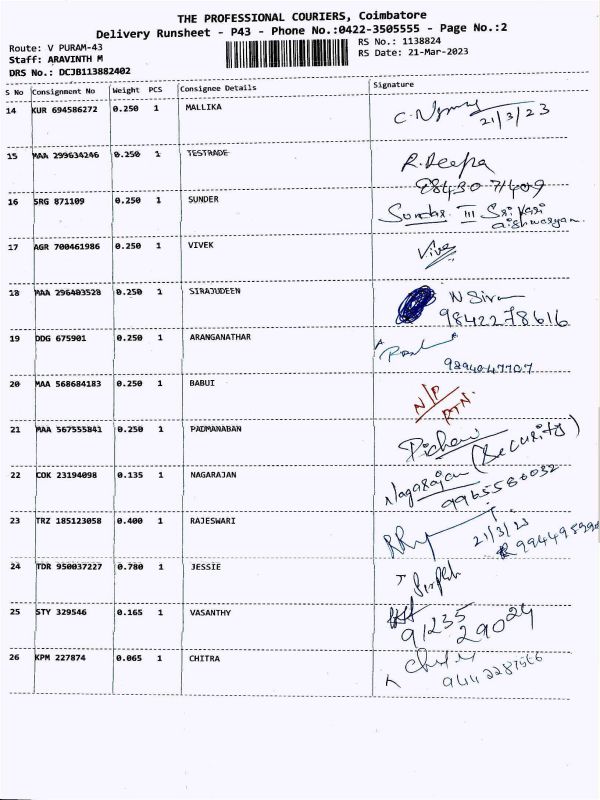 THE PROFESSIONAL COURIERS, Coimbatore
Delivery Runsheet - P43 - Phone No.:0422-3505555 - Page No.:2
Route: V PURAM-43
RS No.: 1138824
Staff: ARAVINTH M
RS Date: 21-Mar-2023
DRS No.: DCJB113882402
S No Consignment No Weight PCS Consignee Details Signature
14 KUR 694586272 0.250 1 MALLIKA
21/3/23
15 MAA 299634246 0.250 1 TESTRADE R. Deepa
16 SRG 871109 0.250 1 SUNDER Sundar III Sri Hari
17 AGR 700461986 0.250 1 VIVEK Vivek
18 MAA 296403528 0.250 1 SIRAJUDEEN N Siva
9842278616
19 DDG 675901 0.250 1 ARANGANATHAR
20 MAA 568684183 0.250 1 BABUI N/P
RTN.
21 MAA 567555841 0.250 1 PADMANABAN (Security)
22 COK 23194098 0.135 1 NAGARAJAN Nagarajan
9965580032
23 TRZ 185123058 0.400 1 RAJESWARI 21/3/23
24 TDR 950037227 0.780 1 JESSIE
25 STY 329546 0.165 1 VASANTHY
91235
29024
26 KPM 227874 0.065 1 CHITRA